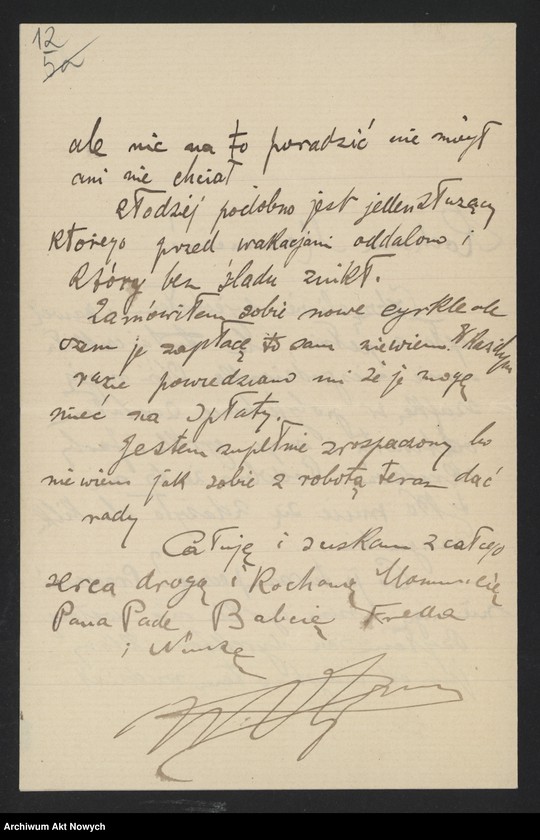 12
5a
ale nic na to poradzić nie mógł
ani nie chciał
złodziej podobno jest jeden służący
którego przed wakacjami oddalono i
który bez śladu znikł.
Zamówiłem sobie nowe cyrkle ale
czem je zapłacę to sam niewiem. W każdym
razie powiedziano mi że je mogę
mieć na spłaty.
Jestem zupełnie zrospaczony bo
niewiem jak sobie z robotą teraz dać
rady
Całuję i ściskam z całego
serca drogą i Kochaną Mamusię
Pana Babcię Fredka
i
Archiwum Akt Nowych